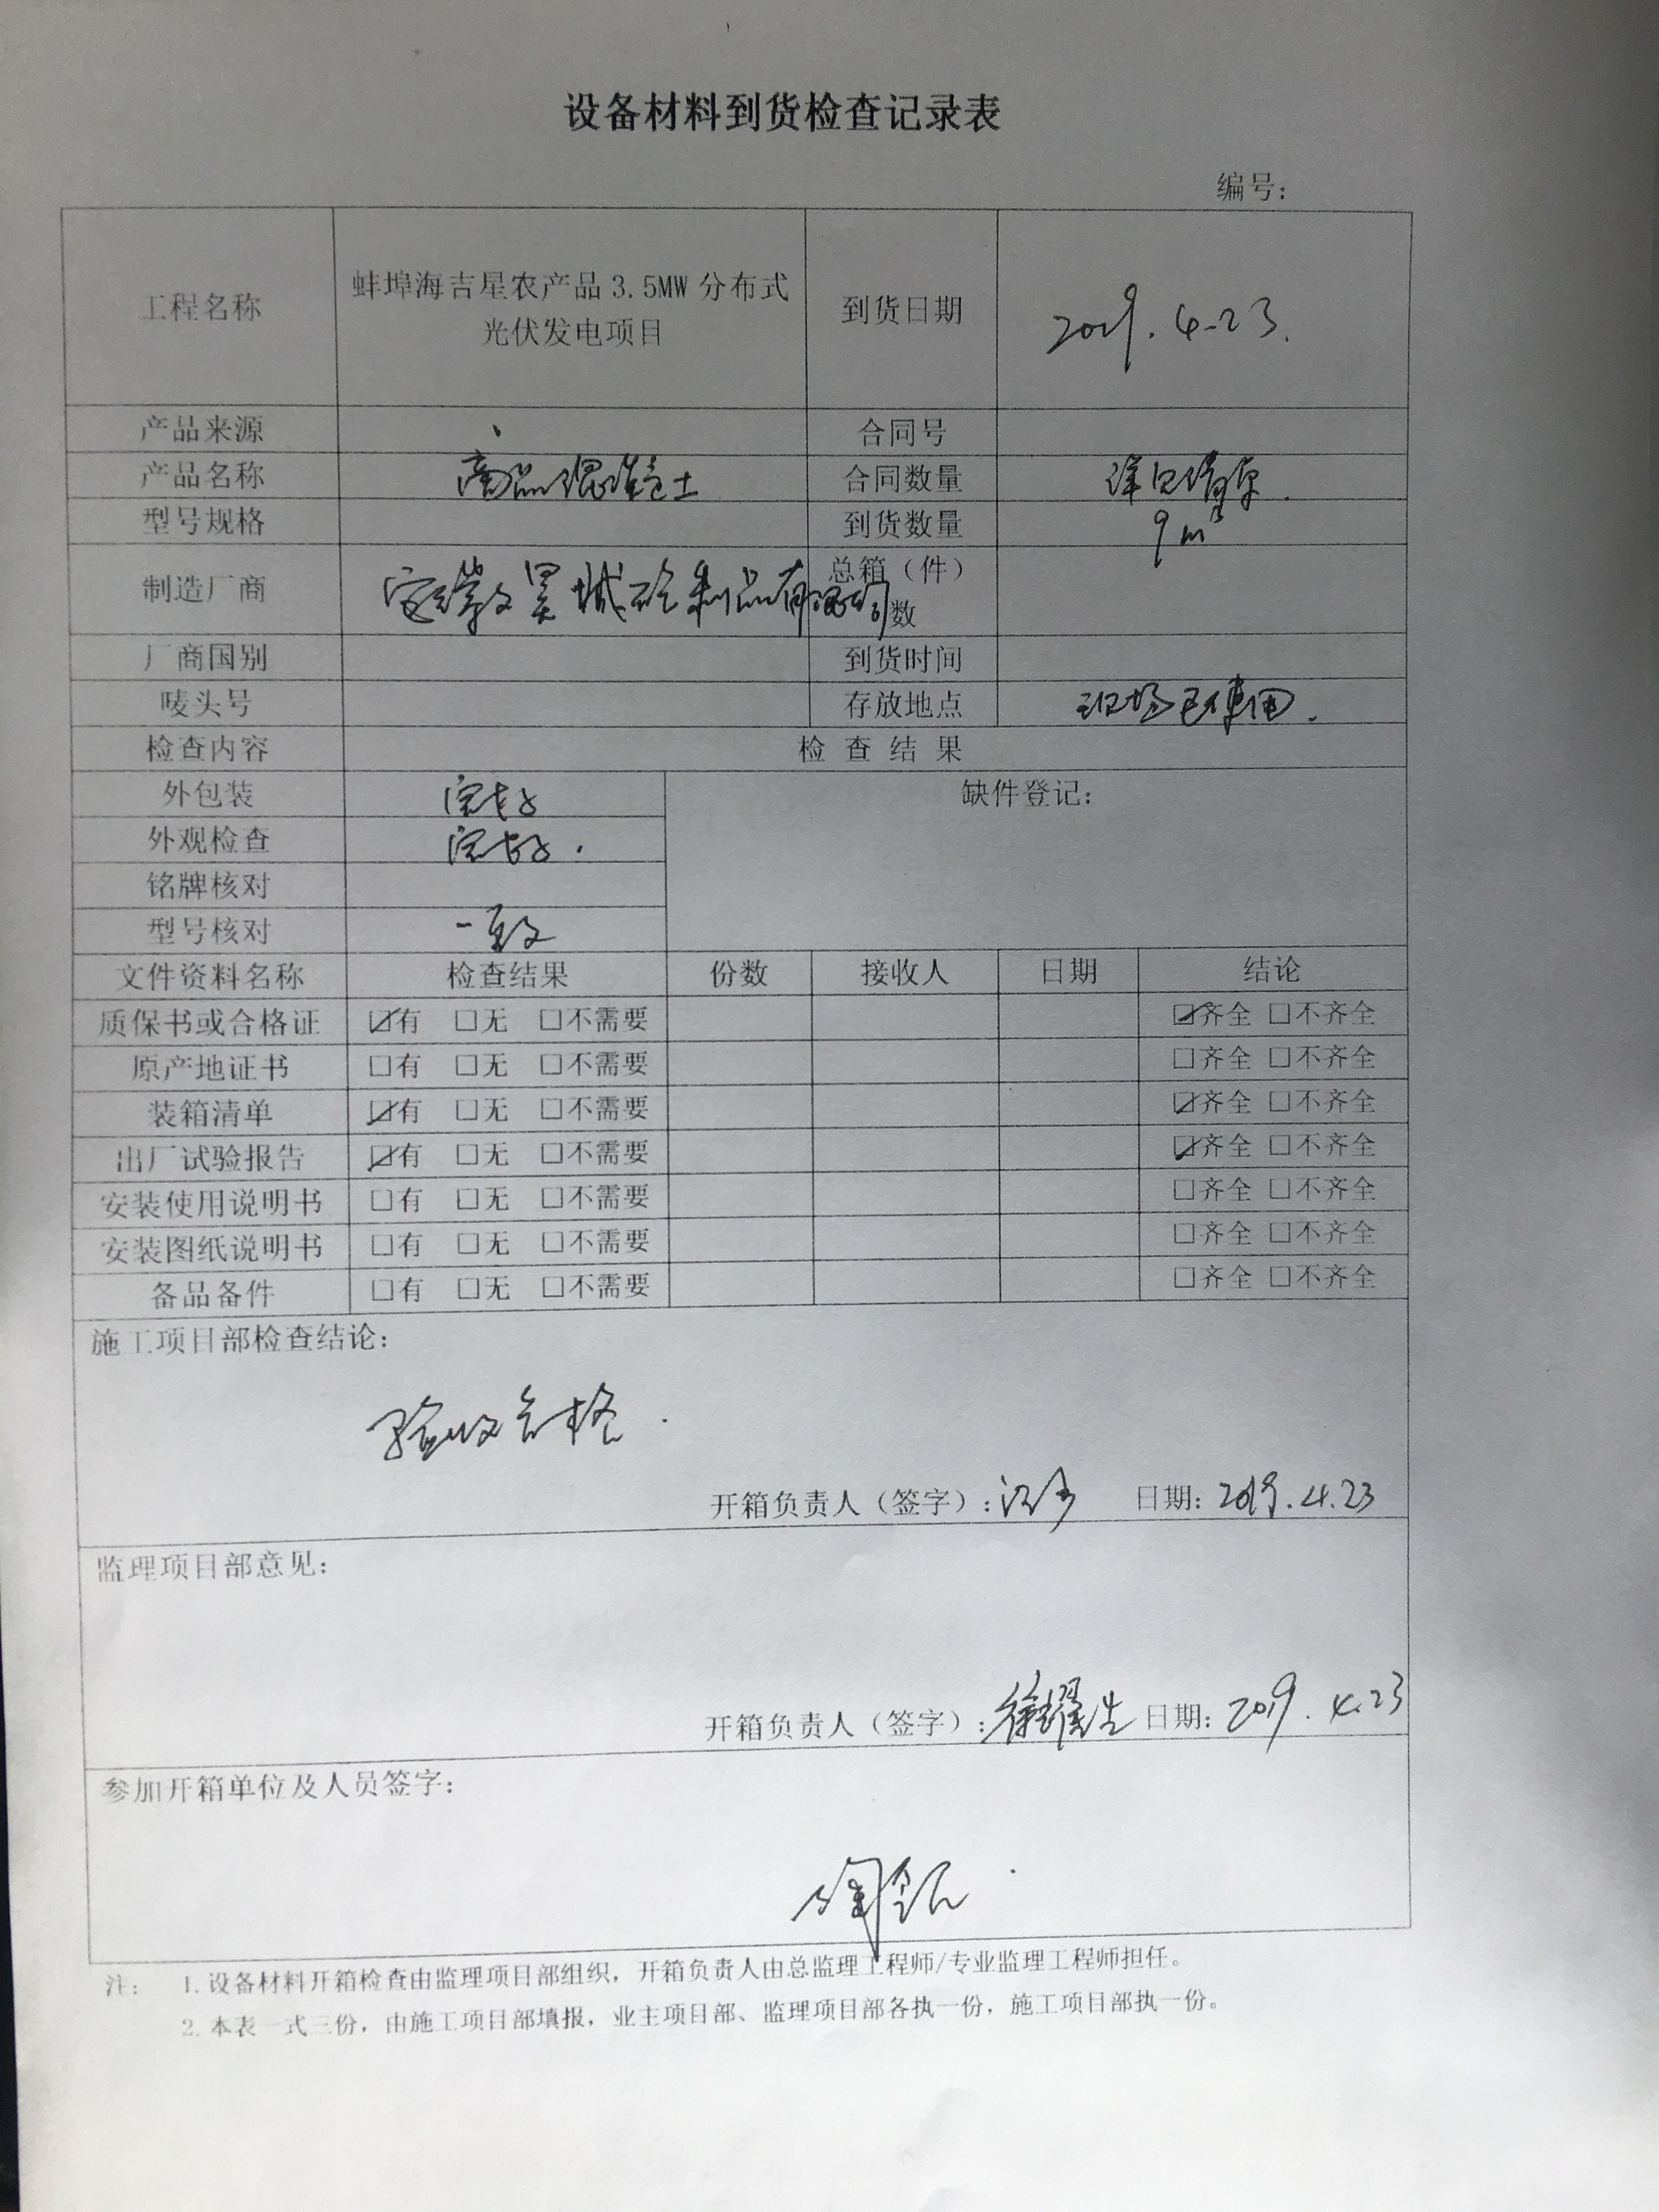 设备材料到货检查记录表
编号:
工程名称 蚌埠海吉星农产品3.5MW分布式光伏发电项目 到货日期 2019.4-23.
产品来源 合同号
产品名称 商品混凝土 合同数量 详见清单.
型号规格 到货数量 9m³
制造厂商 昊城砼制品有限公司 总箱（件）数
厂商国别 到货时间
唛头号 存放地点 现场已使用.
检查内容 检 查 结 果
外包装 完好 缺件登记:
外观检查 完好.
铭牌核对
型号核对 一致
文件资料名称 检查结果 份数 接收人 日期 结论
质保书或合格证 ☑有 □无 □不需要 ☑齐全 □不齐全
原产地证书 □有 □无 □不需要 □齐全 □不齐全
装箱清单 ☑有 □无 □不需要 ☑齐全 □不齐全
出厂试验报告 ☑有 □无 □不需要 ☑齐全 □不齐全
安装使用说明书 □有 □无 □不需要 □齐全 □不齐全
安装图纸说明书 □有 □无 □不需要 □齐全 □不齐全
备品备件 □有 □无 □不需要 □齐全 □不齐全
施工项目部检查结论:
验收合格.
开箱负责人（签字）: 日期: 2019.4.23
监理项目部意见:
开箱负责人（签字）: 日期: 2019.4.23
参加开箱单位及人员签字:
注: 1.设备材料开箱检查由监理项目部组织，开箱负责人由总监理工程师/专业监理工程师担任。
2.本表一式三份，由施工项目部填报，业主项目部、监理项目部各执一份，施工项目部执一份。